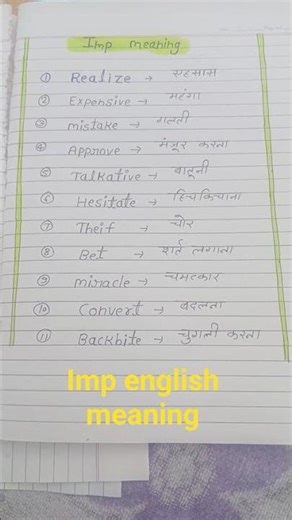 Imp meaning
① Realize → एहसास
② Expensive → महंगा
③ mistake → गलती
④ Approve → मंजूर करना
⑤ Talkative → बातूनी
⑥ Hesitate → हिचकिचाना
⑦ Theif → चोर
⑧ Bet → शर्त लगाना
⑨ miracle → चमत्कार
⑩ Convert → बदलना
⑪ Backbite → चुगली करना
Imp english
meaning